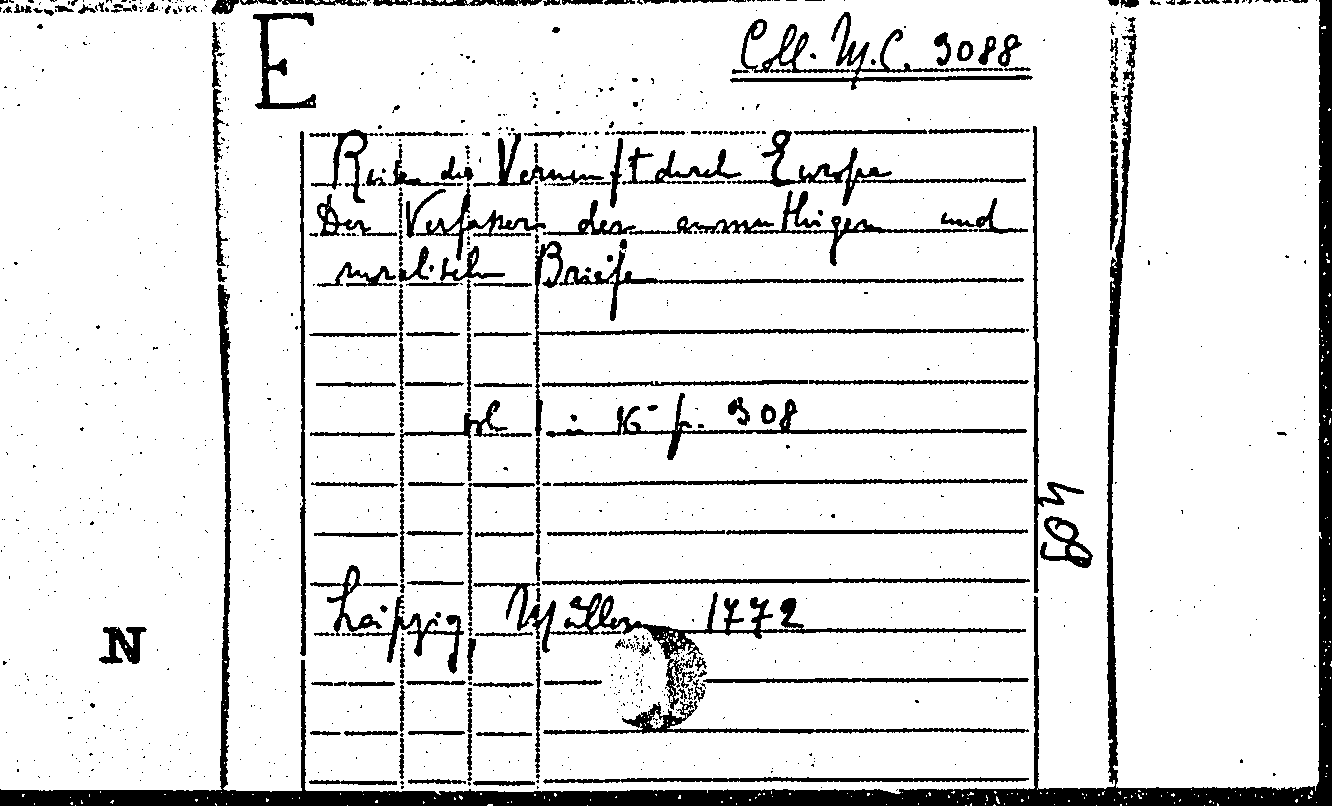 E
Coll. M.C. 3088
Reisen der Vernunft durch Europa
Der Verfasser der anmuthigen und
moralischen Briefe
vol 1 in 16° p. 308
504
Leipzig, Müller 1772
N